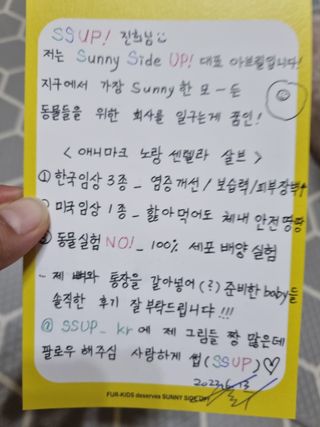 SSUP! 진희님
저는 Sunny Side UP! 대표 아브릴입니다!
지구에서 가장 Sunny한 모-든
동물들을 위한 회사를 일구는게 꿈인!
< 애니마크 노랑 센텔라 살브 >
① 한국임상 3종 _ 염증개선 / 보습력 / 피부장벽↑
② 미국임상 1종 _ 핥아먹어도 체내 안전땅땅
③ 동물실험 NO! _ 100% 세포 배양 실험
- 제 뼈와 통장을 갈아넣어(?) 준비한 baby들
솔직한 후기 잘 부탁드립니다!!!
@ SSUP_kr 에 제 그림들 짱 많은데
팔로우 해주심 사랑하게 썹(SSUP)♡
2023.6.13
FUR-KIDS deserves SUNNY SIDE UP!